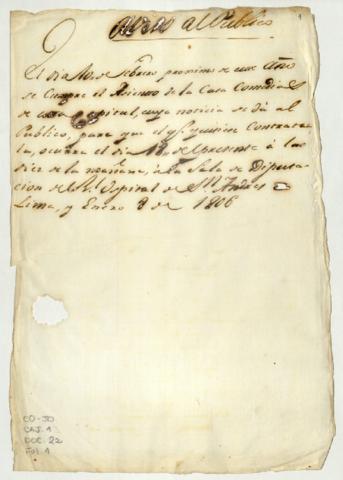 Aviso al Publico
El dia 10 de Febrero proximo de este Año
se Cumple el Asiento de la Casa Comedias
de esta Capital, cuya noticia se dá al
Publico, para que el qe. quisiere Contratar
la, ocurra el dia de el presente á las
diez de la mañana, á la Sala de Diputa
cion del Rl. Ospital de Sn. Andres
Lima, y Enero 8 de 1806
1
CO-JO
CAJ. 1
DOC. 22
Fol. 1